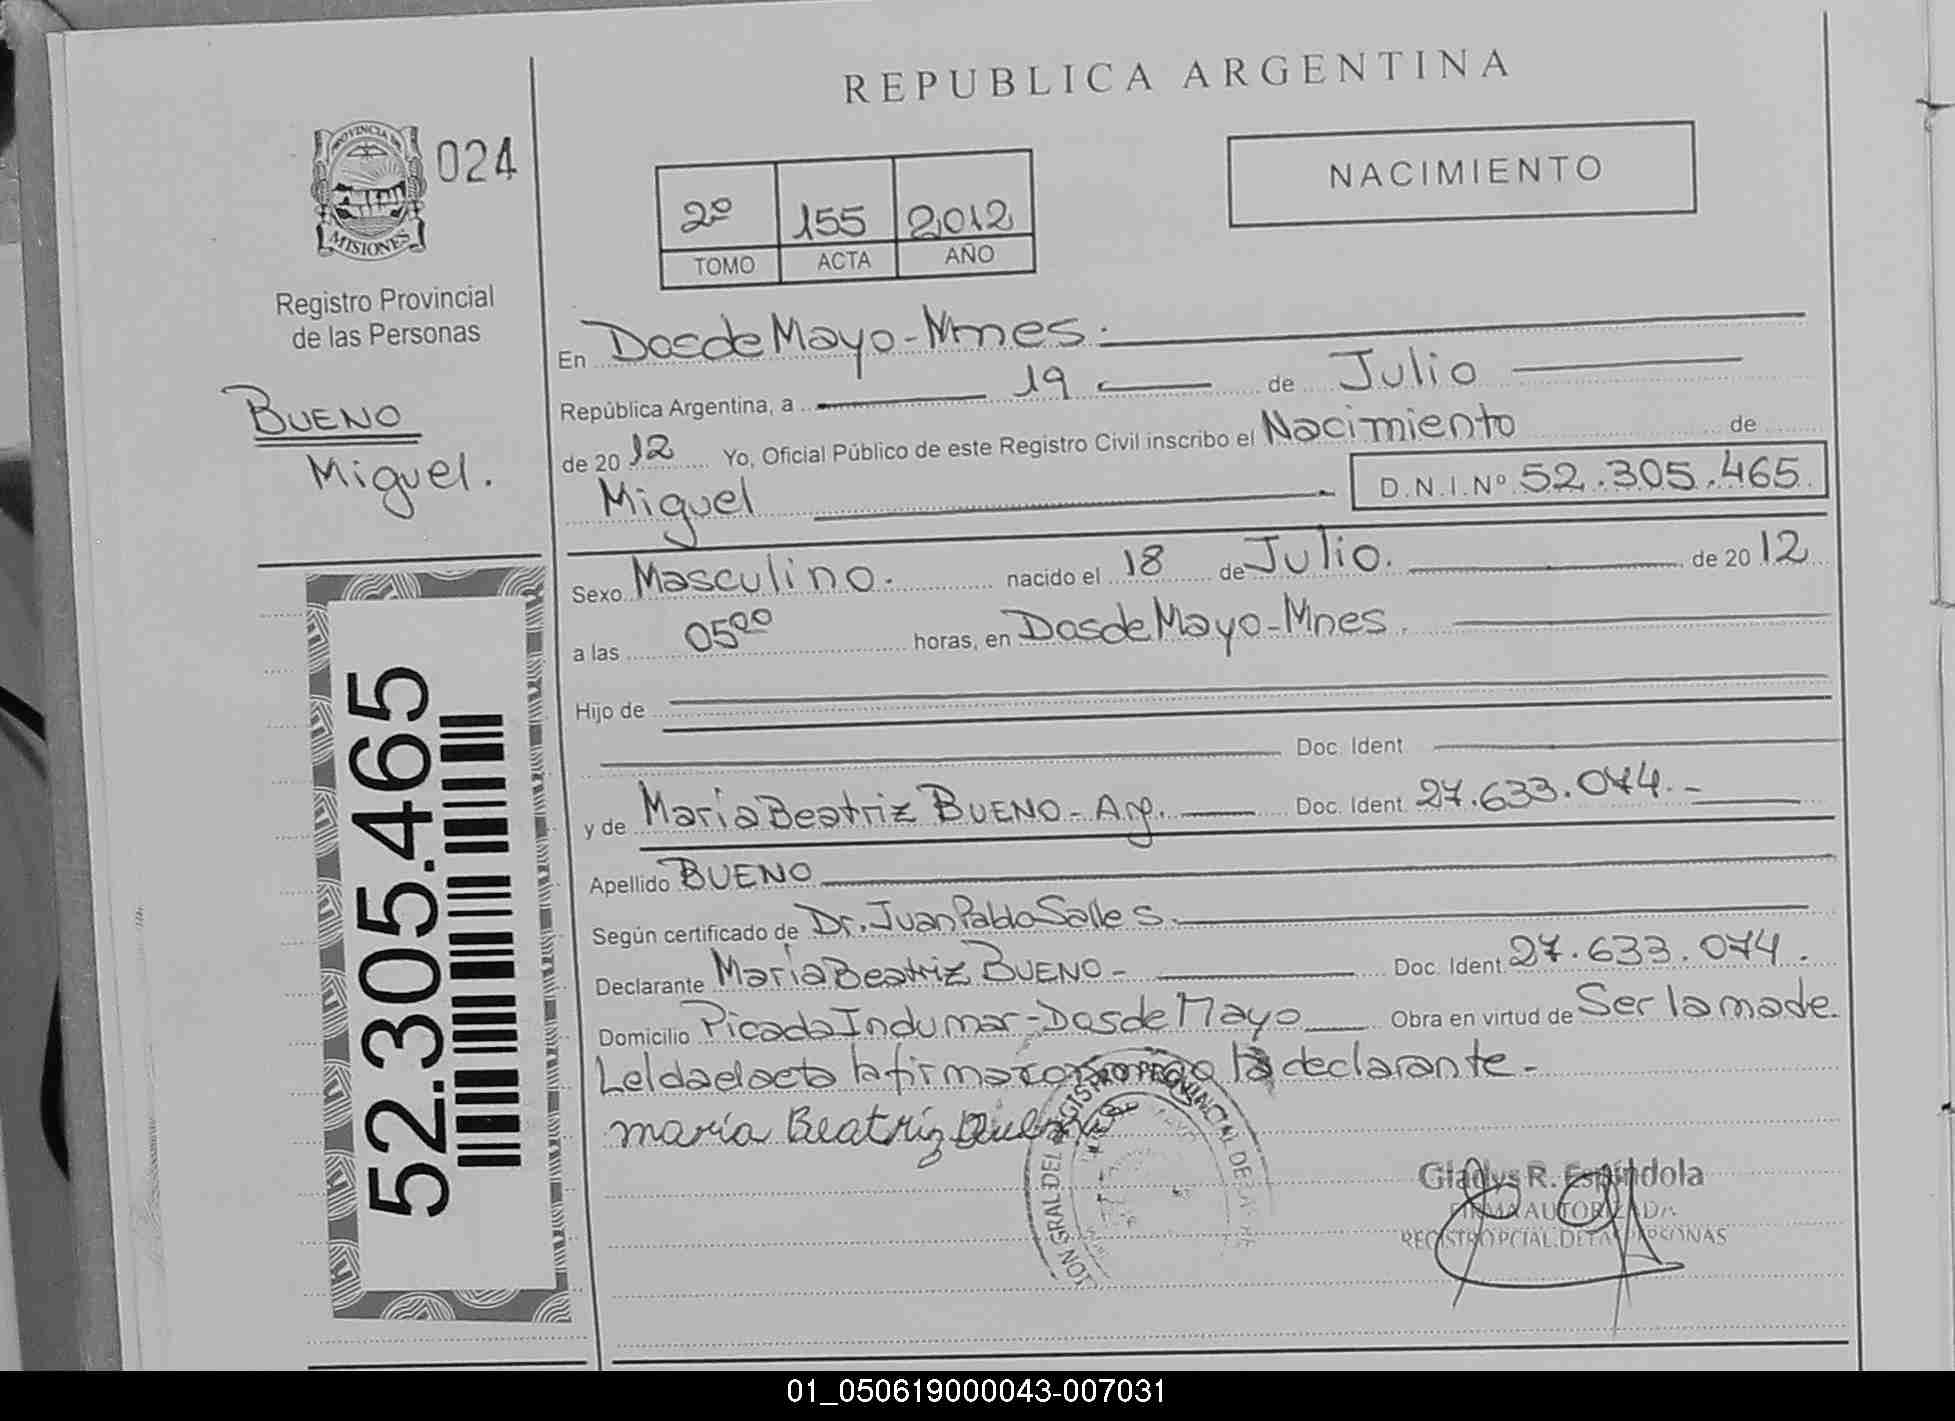 REPUBLICA ARGENTINA
PROVINCIA DE
MISIONES
024
Registro Provincial
de las Personas
BUENO
Miguel.
52.305.465
2º 155 2012
TOMO ACTA AÑO
NACIMIENTO
En Dos de Mayo - Mnes.
República Argentina, a 19 de Julio
de 2012 Yo, Oficial Público de este Registro Civil inscribo el Nacimiento de
Miguel D.N.I.Nº 52.305.465
Sexo Masculino. nacido el 18 de Julio. de 2012
a las 05⁰⁰ horas, en Dos de Mayo - Mnes.
Hijo de
Doc. Ident
y de María Beatriz BUENO - Arg. Doc. Ident. 27.633.074.-
Apellido BUENO
Según certificado de Dr. Juan Pablo Salles.
Declarante María Beatriz BUENO - Doc. Ident. 27.633.074.
Domicilio Picada Indumar - Dos de Mayo Obra en virtud de Ser la made.
Leída el acta la firma conmigo la declarante.-
maría Beatriz Bueno
REGISTRO PROVINCIAL DE LAS
Gladys R. Espíndola
FIRMA AUTORIZADA
REGISTRO PCIAL. DE LAS PERSONAS
01_050619000043-007031